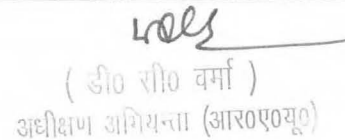 ( डी० सी० वर्मा )
अधीक्षण अभियन्ता (आर०ए०यू०)